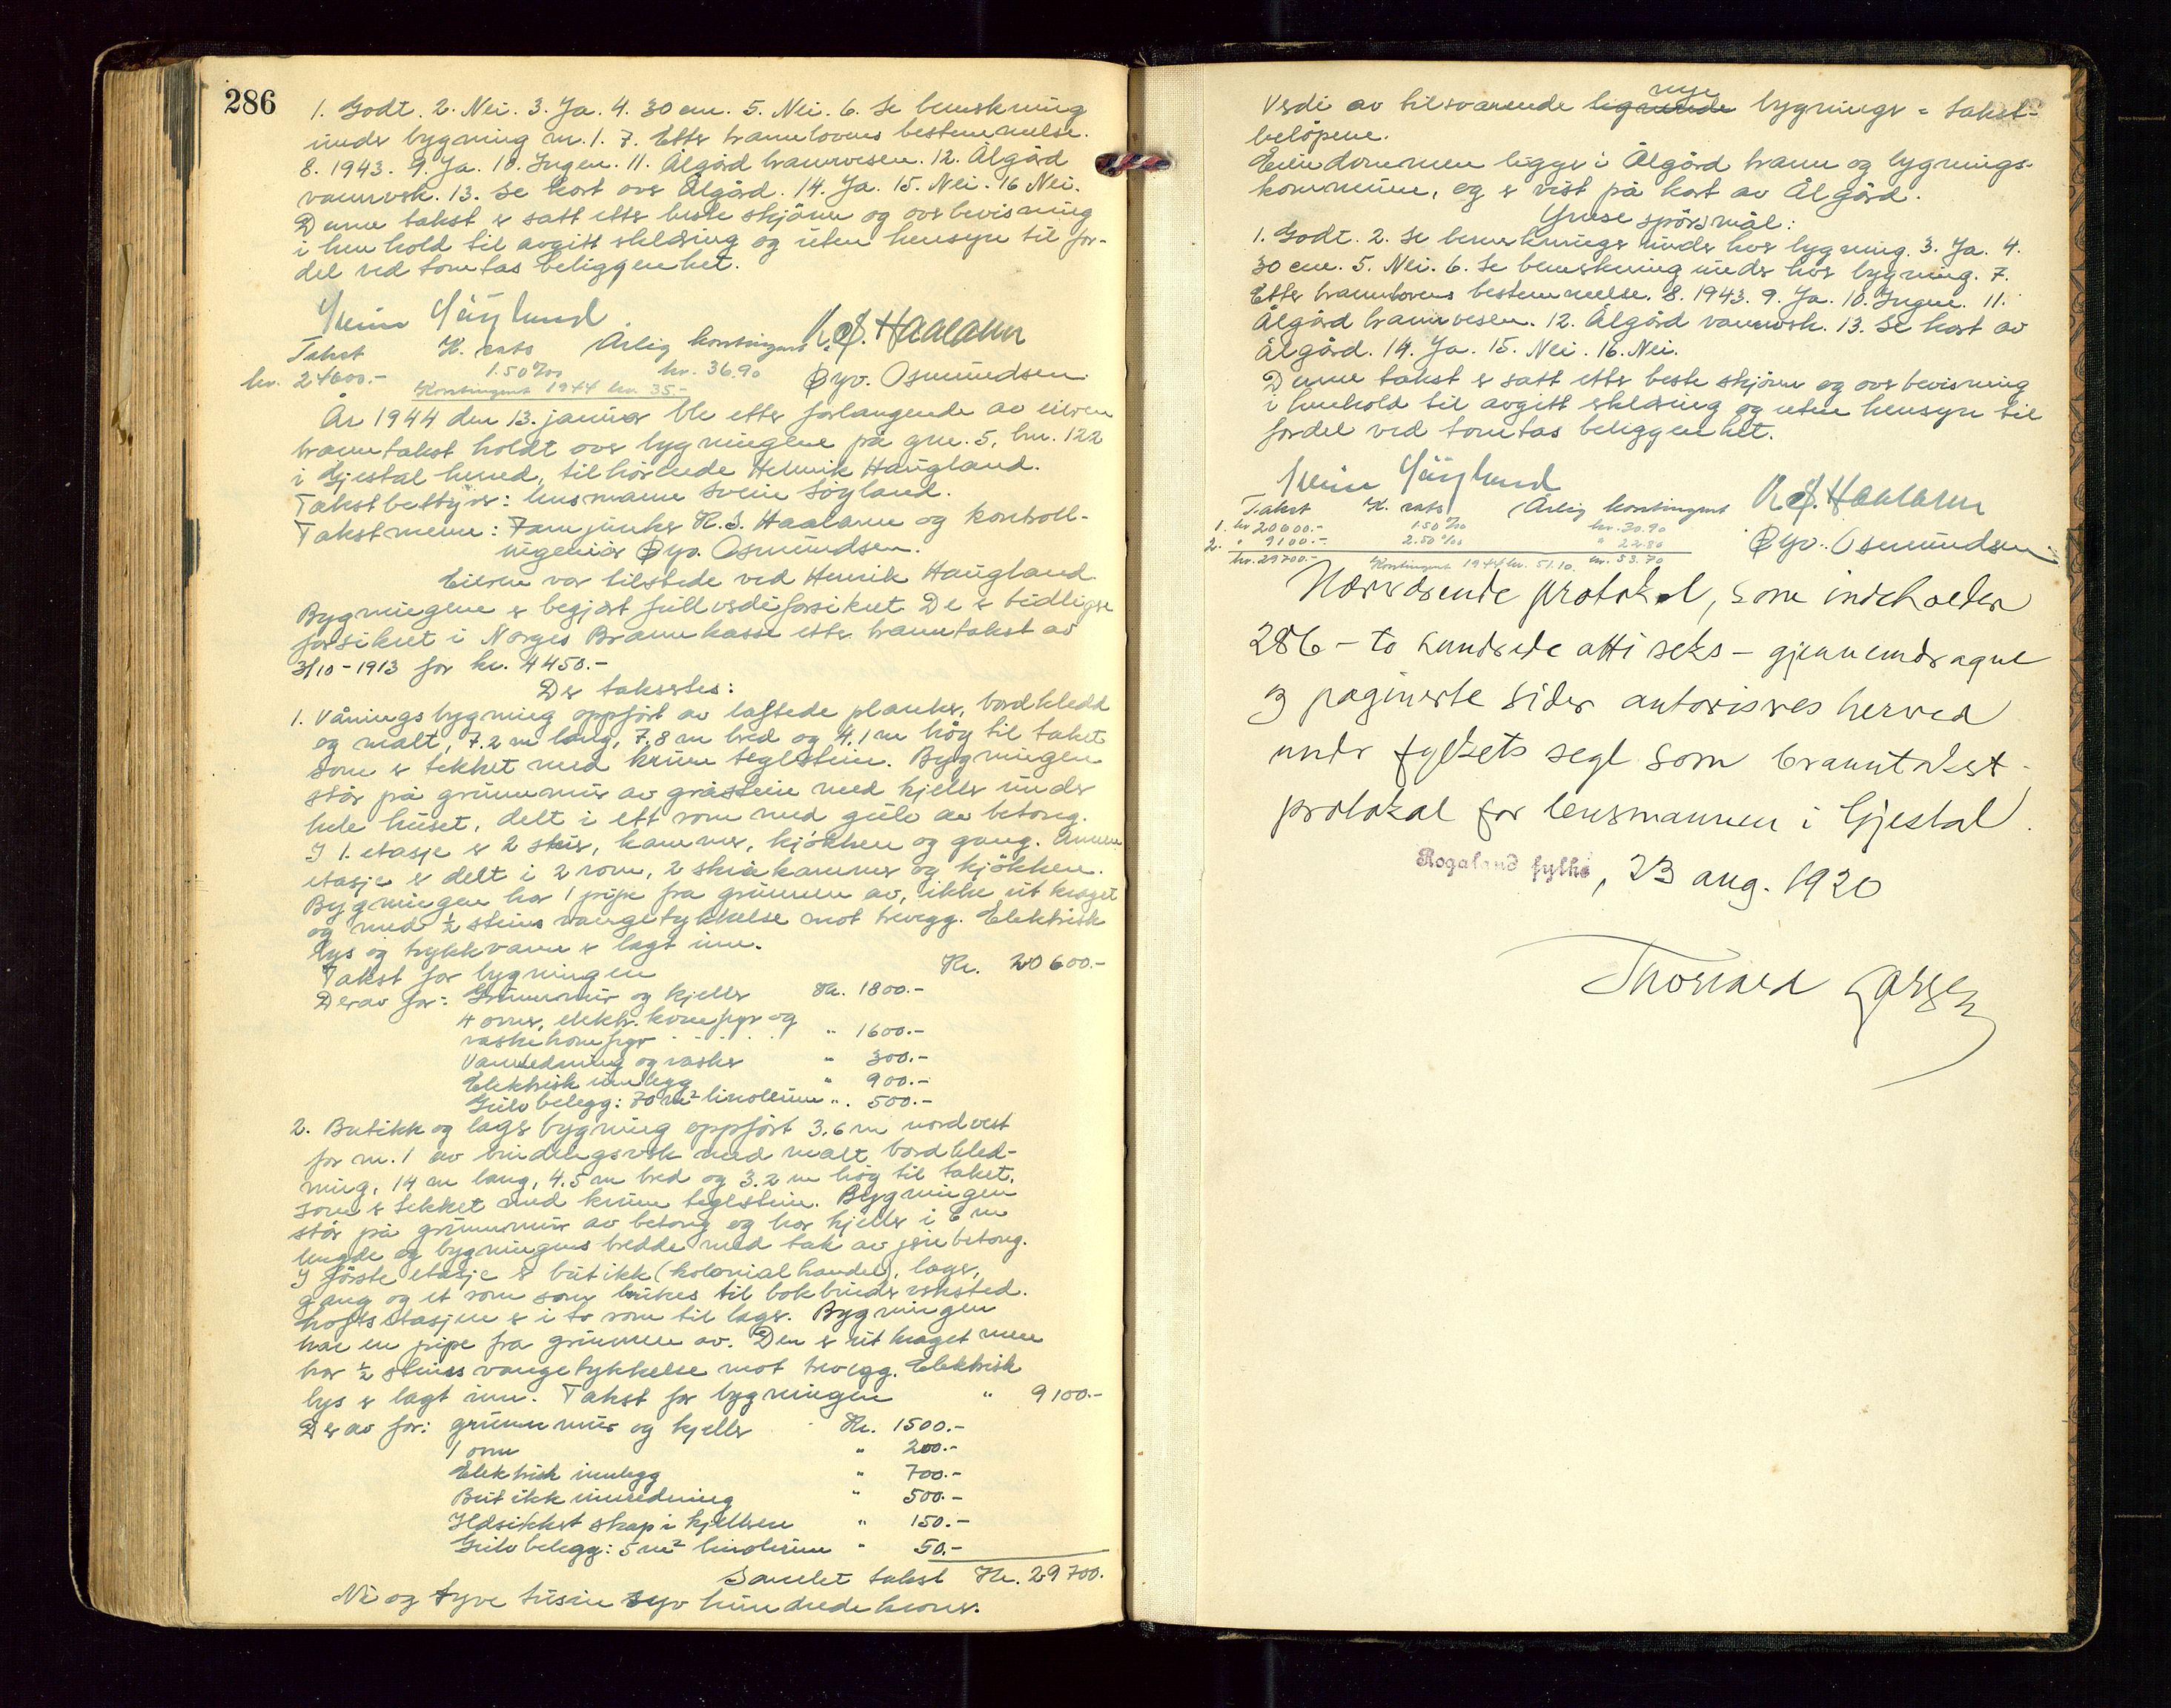 286
1. Godt. 2. Nei. 3. Ja. 4. 30 cm. 5. Nei. 6. Se bemerkning
under bygning nr. 1. 7. Etter brannlovens bestemmelse.
8. 1943. 9. Ja. 10. Ingen. 11. Ålgård brannvesen. 12. Ålgård
vannverk. 13. Se kart over Ålgård. 14. Ja. 15. Nei. 16 Nei.
Denne takst er satt etter beste skjönn og overbevisning
i henhold til avgitt erklæring og uten hensyn til for-
del ved tomtas beliggenhet.
Svein Söyland
K. S. Haaland
Takst K. sats Årlig kontingent
kr. 24600.- 1.50 ‰ kr. 36.90
Øyv. Osmundsen
Kontingent 1944 kr. 35.-
År 1944 den 13. januar ble etter forlangende av eieren
branntakst holdt over bygningene på gnr. 5, bnr. 122
i Gjestal herred, tilhörende Henrik Haugland.
Takstbestyrer: lensmann Svein Söyland.
Takstmenn: Fanejunker K. S. Haaland og kontroll-
ingeniör Øyv. Osmundsen.
Eieren var tilstede ved Henrik Haugland.
Bygningene er begjært fullverdiforsikret. De er tidligere
forsikret i Norges Brannkasse etter branntakst av
3/10-1913 for kr. 4450.-
Der taksertes:
1. Våningsbygning oppfört av laftede planker, bordkledd
og malt, 7.2 m lang, 7.8 m bred og 4.1 m höy til taket
som er tekket med krum teglstein. Bygningen
står på grunnmur av gråstein med kjeller under
hele huset, delt i ett rom med gulv av betong.
I 1. etasje er 2 stuer, kammer, kjökken og gang. Annen
etasje er delt i 2 rom, 2 skråkammer og kjökken.
Bygningen har 1 pipe fra grunnen av, ikke utkraget
og med ½ steins vangetykkelse mot trevegg. Elektrisk
lys og trykkvann er lagt inn.
Takst for bygningen Kr. 20600.-
Derav for: Grunnmur og kjeller Kr. 1800.-
4 ovner, elektr. komfyr og
vaskekomfyr . . . . . " 1600.-
Vannledning og vasker " 300.-
Elektrisk innlegg " 900.-
Gulvbelegg: 70 m² linoleum " 500.-
2. Butikk og lagerbygning oppfört 3.6 m nordvest
for nr. 1 av bindingsverk med malt bordkled-
ning, 14 m lang, 4.5 m bred og 3.2 m höy til taket,
som er tekket med krum teglstein. Bygningen
står på grunnmur av betong og har kjeller i 6 m
lengde og bygningens bredde med tak av jernbetong.
I förste etasje er butikk (kolonialhandel), lager,
gang og et rom som brukes til bokbinderverksted.
Loftsetasjen er i to rom til lager. Bygningen
har en pipe fra grunnen av. Den er utkraget men
har ½ steins vangetykkelse mot trevegg. Elektrisk
lys er lagt inn. Takst for bygningen " 9100.-
Derav for: grunnmur og kjeller Kr. 1500.-
1 ovn " 200.-
Elektrisk innlegg " 700.-
Butikkinnredning " 500.-
Ildsikkert skap i kjelleren " 150.-
Gulvbelegg: 5 m² linoleum " 50.-
Samlet takst Kr. 29700.-
Ni og tyve tusen syv hundrede kroner.
nye
Verdi av tilsvarende lignende bygninger = takst-
belöpene.
Eiendommen ligger i Ålgård brann og bygnings-
kommune, og er vist på kart av Ålgård.
Ymse spörsmål:
1. Godt. 2. Se bemerkninger under hver bygning. 3. Ja. 4.
30 cm. 5. Nei. 6. Se bemerkning under hver bygning. 7.
Etter brannlovens bestemmelse. 8. 1943. 9. Ja. 10. Ingen. 11.
Ålgård brannvesen. 12. Ålgård vannverk. 13. Se kart av
Ålgård. 14. Ja. 15. Nei. 16. Nei.
Denne takst er satt etter beste skjönn og overbevisning
i henhold til avgitt erklæring og uten hensyn til
fordel ved tomtas beliggenhet.
Svein Söyland
K. S. Haaland
Takst K. sats Årlig kontingent
1. kr. 20600.- 1.50 ‰ kr. 30.90
2. " 9100.- 2.50 ‰ " 22.80
Øyv. Osmundsen
kr. 29700.- Kontingent 1944 kr. 51.10. kr. 53.70
Nærværende protokol, som indeholder
286 - to hundrede otti seks - gjennemdragne
og paginerte sider autoriseres herved
under fylkets segl som branntakst-
protokol for lensmannen i Gjestal.
Rogaland fylke, 23 aug. 1920
Thorvald Larsen